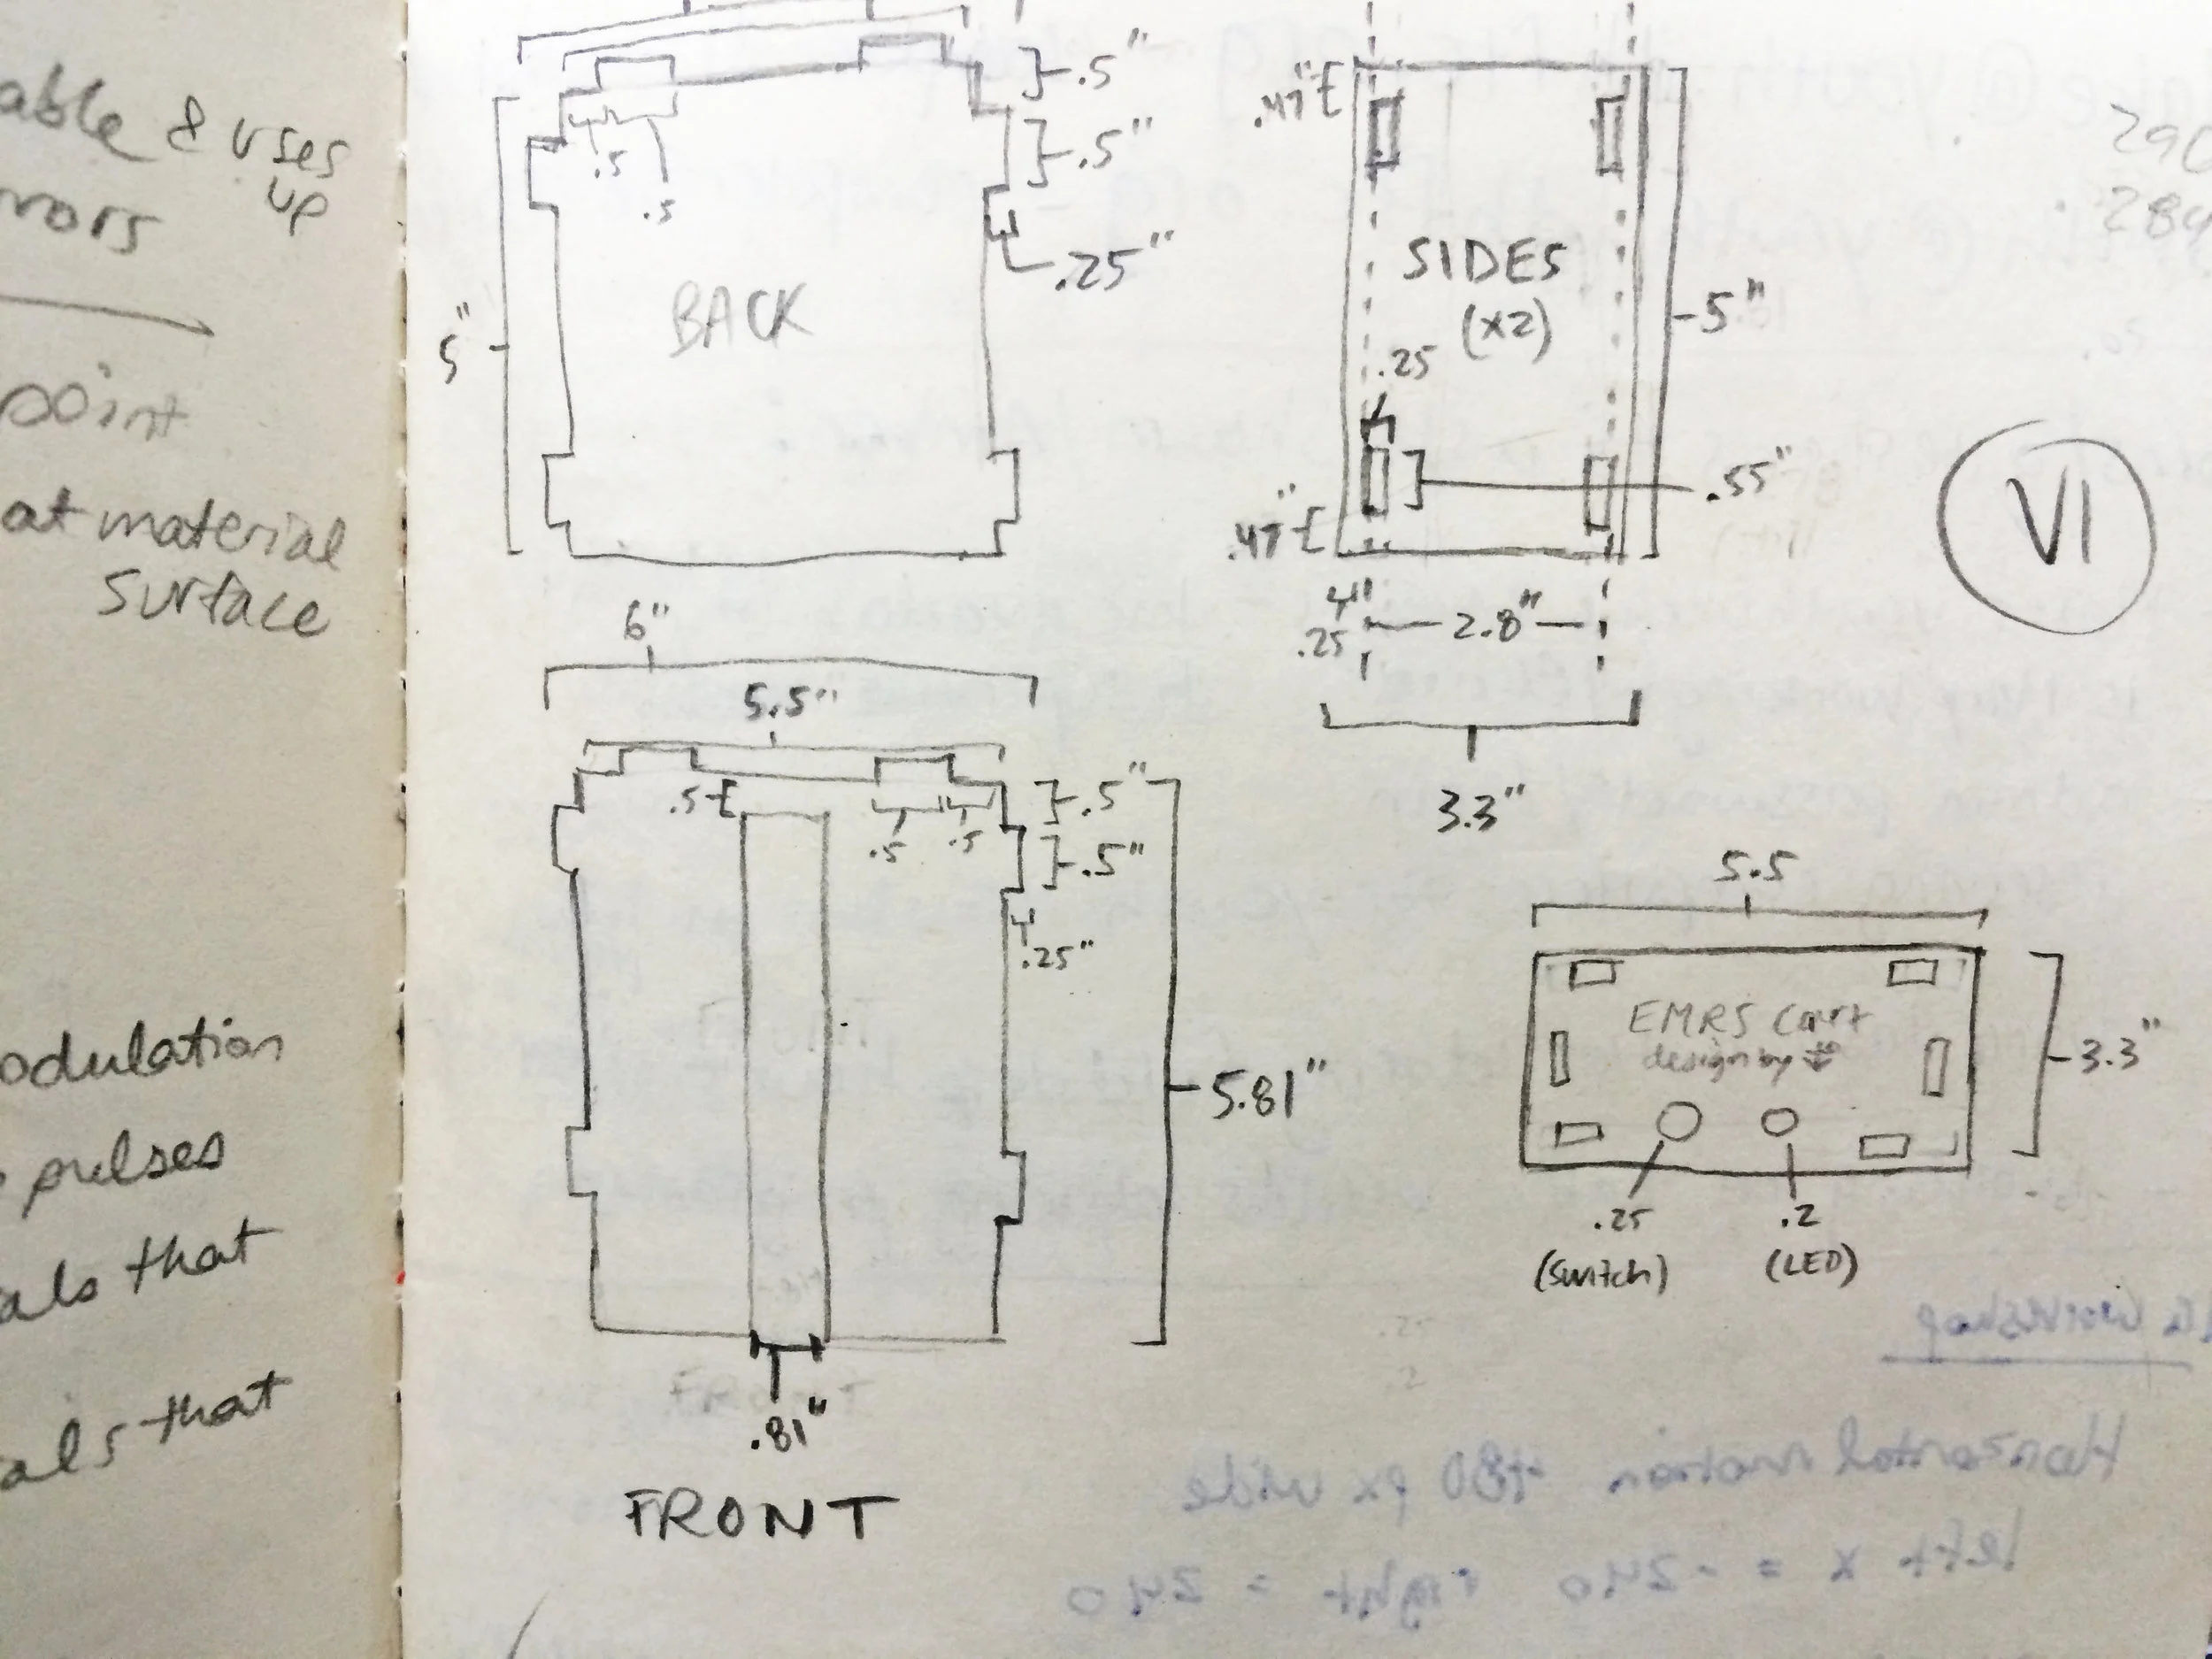 able & uses
up
rrors
point
at material
surface
odulation
pulses
als that
als that
.5"
.5"
.5
.5
.25"
BACK
5"
.47"
SIDES
(x2)
5"
.25
.55"
.47"
.25
2.8"
3.3"
V1
6"
5.5"
.5
.5"
.5
.5
.5"
.25"
5.81"
.81"
FRONT
5.5
EMRS Cart
design by
3.3"
.25
(switch)
.2
(LED)
workshop
Horizontal motion 480 px wide
left x = -240 right = 240